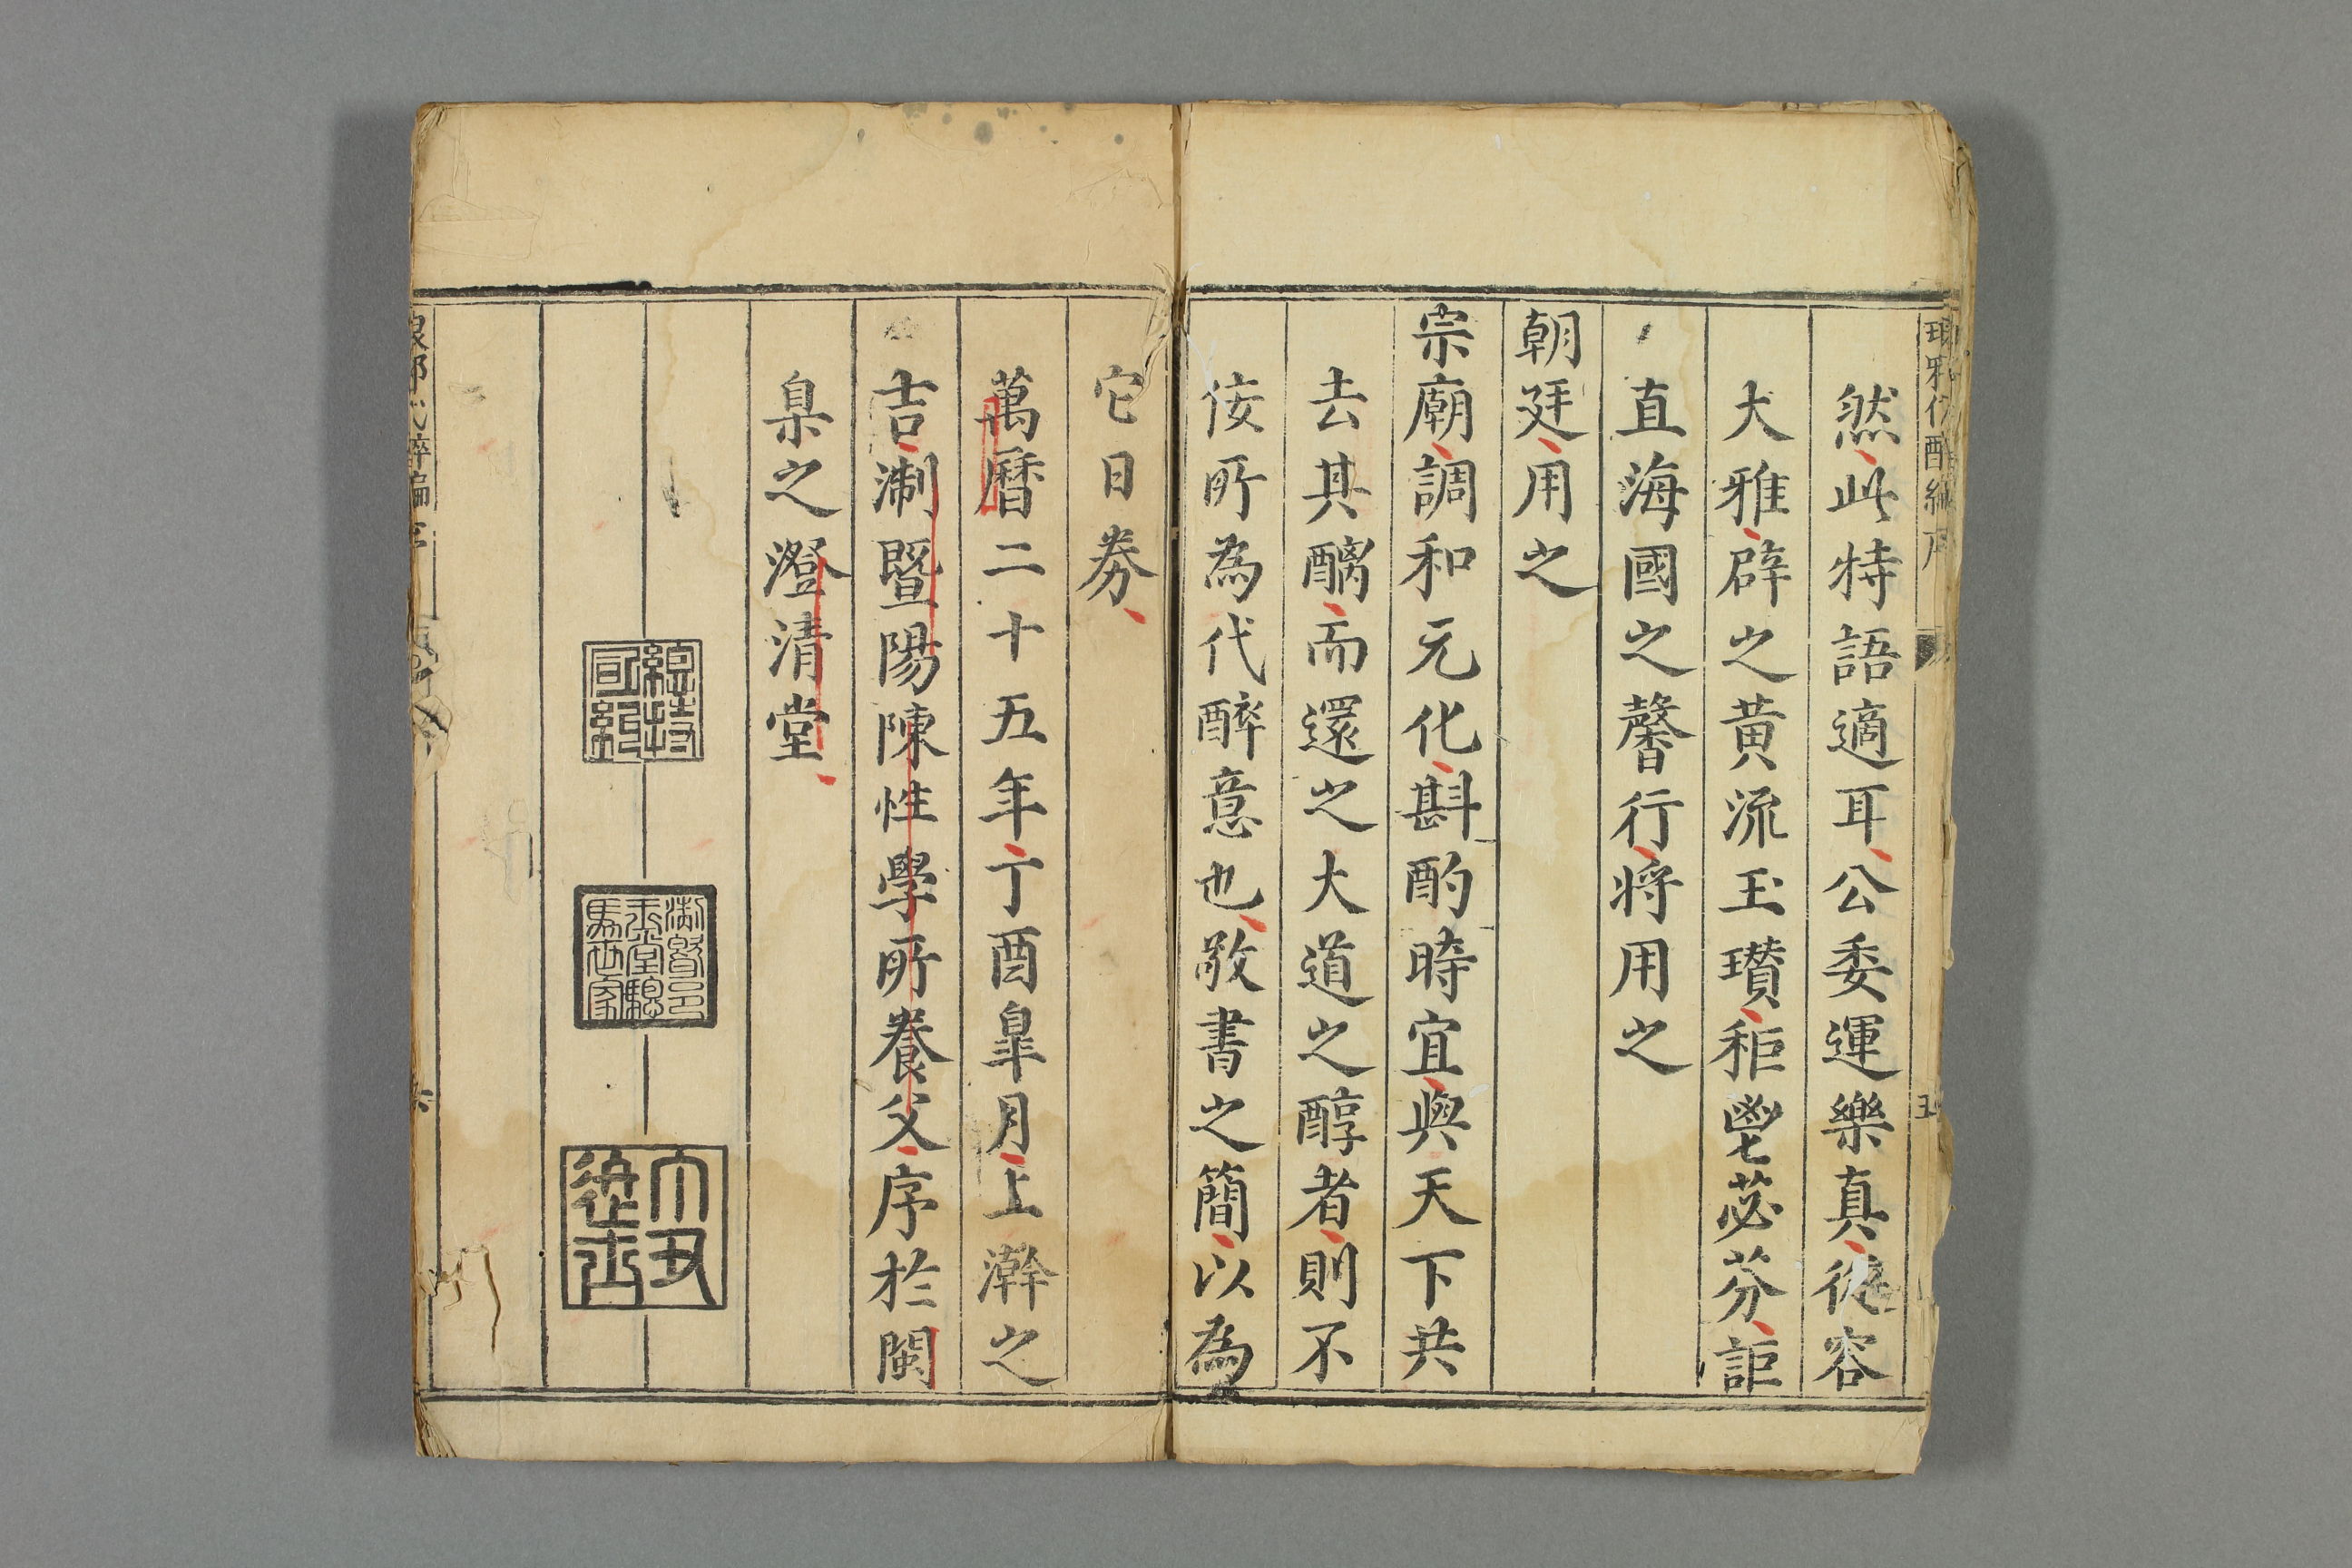 然此特語適耳公委運樂真從容
大雅辟之黄流玉瓚秬鬯苾芬詎
直海國之馨行將用之
朝廷用之
宗廟調和元化斟酌時宜與天下共
去其醨而還之大道之醇者則不
佞所為代醉意也敬書之簡以為
它日券
萬曆二十五年丁酉皐月上澣之
吉淛暨陽陳性學所養父序於閩
臬之澄清堂